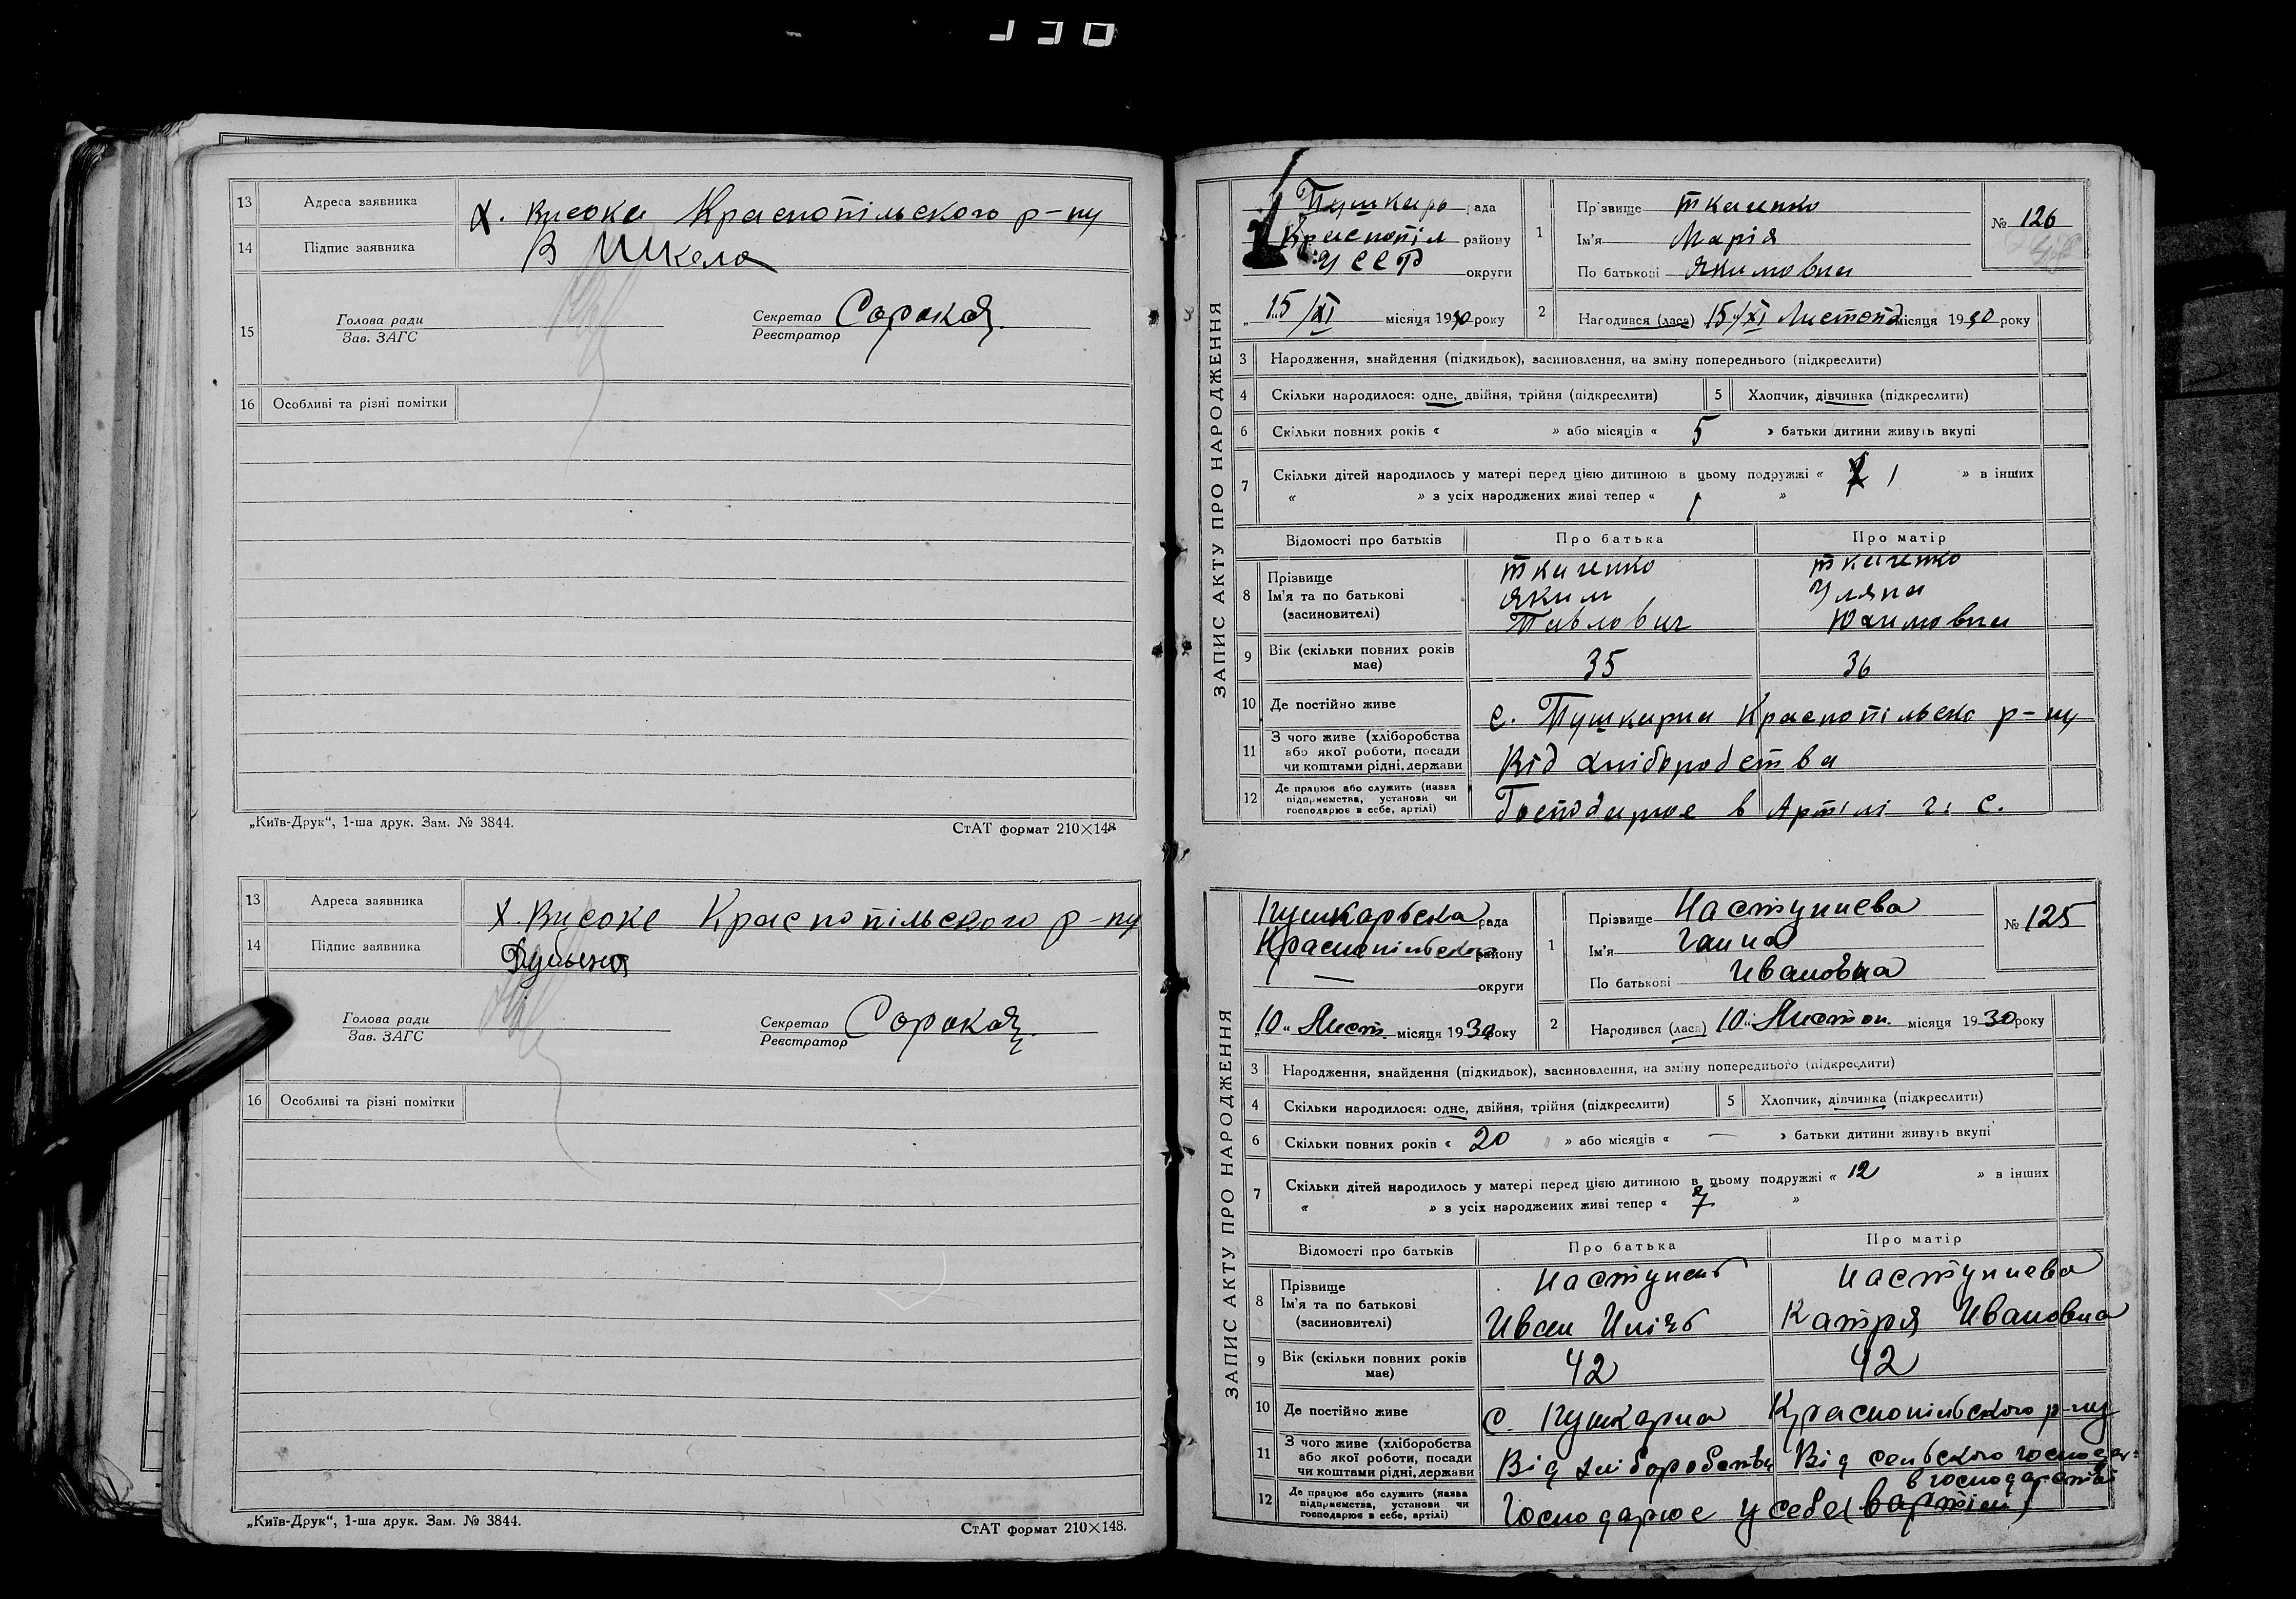 13 Адреса заявника х. Високе Краснопільського р-ну
14 Підпис заявника В Шкела
15 Голова ради Зав. ЗАГС Секретар Реєстратор Сорокоя
16 Особливі та різні помітки
„Київ-Друк“, 1-ша друк. Зам. № 3844. СтАТ формат 210×148.
13 Адреса заявника х. Високе Краснопільського р-ну
14 Підпис заявника
15 Голова ради Зав. ЗАГС Секретар Реєстратор Сорокоя
16 Особливі та різні помітки
„Київ-Друк“, 1-ша друк. Зам. № 3844. СтАТ формат 210×148.
ЗАПИС АКТУ ПРО НАРОДЖЕННЯ
Пушкарь рада
Краснопіл району
УССР округи
„15/XI місяця 1930 року
1 Прізвище Ткаченко
Ім'я Марія
По батькові Якимовна
№ 126
2 Народився (лася) 15/XI Листопад місяця 1930 року
3 Народження, знайдення (підкидьок), засиновлення, на зміну попереднього (підкреслити)
4 Скільки народилося: одне, двійня, трійня (підкреслити) 5 Хлопчик, дівчинка (підкреслити)
6 Скільки повних років « » або місяців « 5 » батьки дитини живуть вкупі
7 Скільки дітей народилось у матері перед цією дитиною в цьому подружжі « 1 » в інших
« » з усіх народжених живі тепер « 1 »
Відомості про батьків Про батька Про матір
8 Прізвище Ткаченко Ткаченко
Ім'я та по батькові Яким Уляна
(засиновителі) Павлович Юхимовна
9 Вік (скільки повних років має) 35 36
10 Де постійно живе с. Пушкарна Краснопільско р-ну
11 З чого живе (хліборобства або якої роботи, посади чи коштами рідні, держави Від хліборобства
12 Де працює або служить (назва підприємства, установи чи господарює в себе, артілі) Господарює в Артілі
ЗАПИС АКТУ ПРО НАРОДЖЕННЯ
Пушкарьска рада
Краснопільського району
— округи
„10“ Лист. місяця 1930 року
1 Прізвище Наступнева
Ім'я Ганна
По батькові Ивановна
№ 125
2 Народився (лася) 10 „ Листоп. місяця 1930 року
3 Народження, знайдення (підкидьок), засиновлення, на зміну попереднього (підкреслити)
4 Скільки народилося: одне, двійня, трійня (підкреслити) 5 Хлопчик, дівчинка (підкреслити)
6 Скільки повних років « 20 » або місяців « — » батьки дитини живуть вкупі
7 Скільки дітей народилось у матері перед цією дитиною в цьому подружжі « 12 » в інших
« » з усіх народжених живі тепер « 7 »
Відомості про батьків Про батька Про матір
8 Прізвище Наступень Наступнева
Ім'я та по батькові Иван Ілічь Катря Ивановна
(засиновителі)
9 Вік (скільки повних років має) 42 42
10 Де постійно живе с. Пушкарна Краснопільского р-ну
11 З чого живе (хліборобства або якої роботи, посади чи коштами рідні, держави Від хліборобства Від сельского господар=
в господарстві
12 Де працює або служить (назва підприємства, установи чи господарює в себе, артілі) Господарює у себе (в артілі)